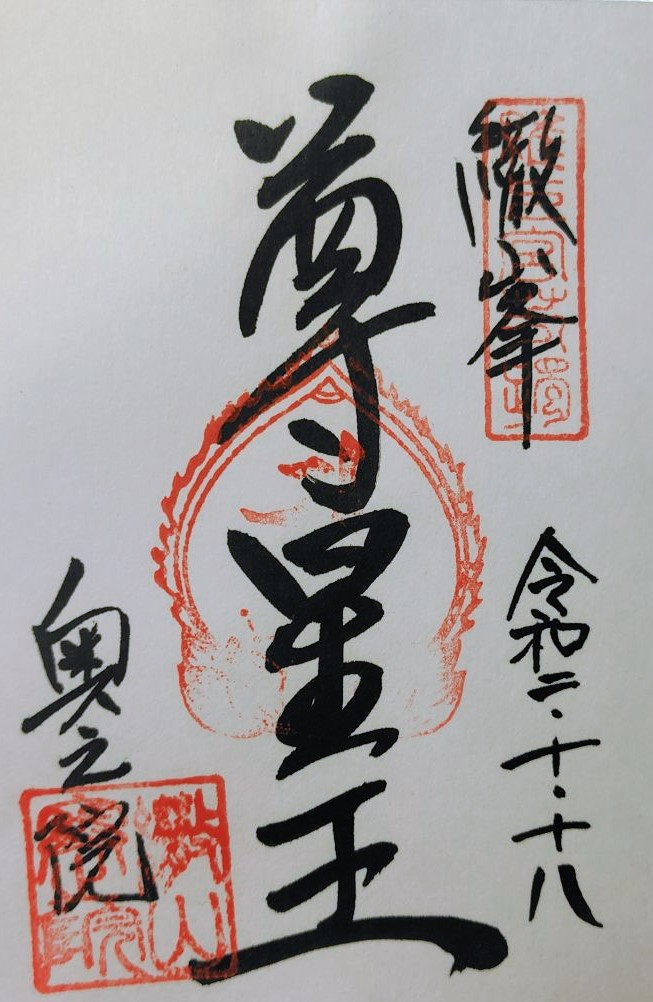 徹峯
令和二・十・十八
尊星王
奥之院